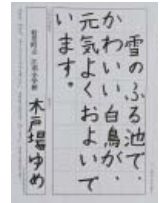 雪のふる池で、
かわいい白鳥が、
元気よくおよいで
います。
木戸場ゆめ